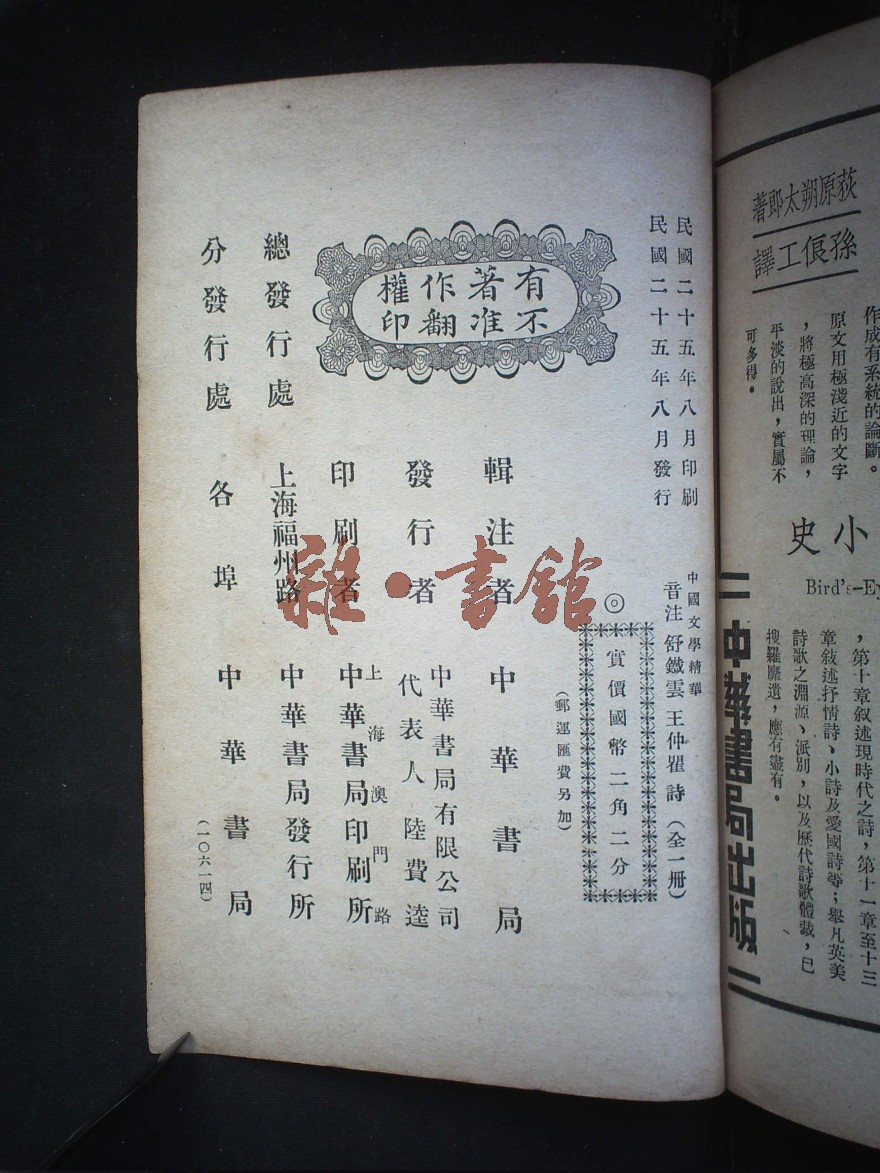 荻原朔太郎著
孫俍工譯
作成有系統的論斷。
原文用極淺近的文字
，將極高深的理論，
平淡的說出，實屬不
可多得。
小史
Bird's-Ey
，第十章叙述現時代之詩，第十一章至十三
章敍述抒情詩、小詩及愛國詩等；舉凡英美
詩歌之淵源、派別，以及歷代詩歌體裁，已
搜羅靡遺，應有盡有。
中華書局出版
民國二十五年八月印刷
民國二十五年八月發行
有著作權
不准翻印
中國文學精華
音注 舒鐵雲 王仲瞿 詩（全一册）
◎實價國幣二角二分
（郵運匯費另加）
輯注者 中華書局
發行者 中華書局有限公司
代表人 陸費逵
印刷者 上海澳門路
中華書局印刷所
總發行處 上海福州路 中華書局發行所
分發行處 各埠 中華書局
（一〇六一四）
雜·書館